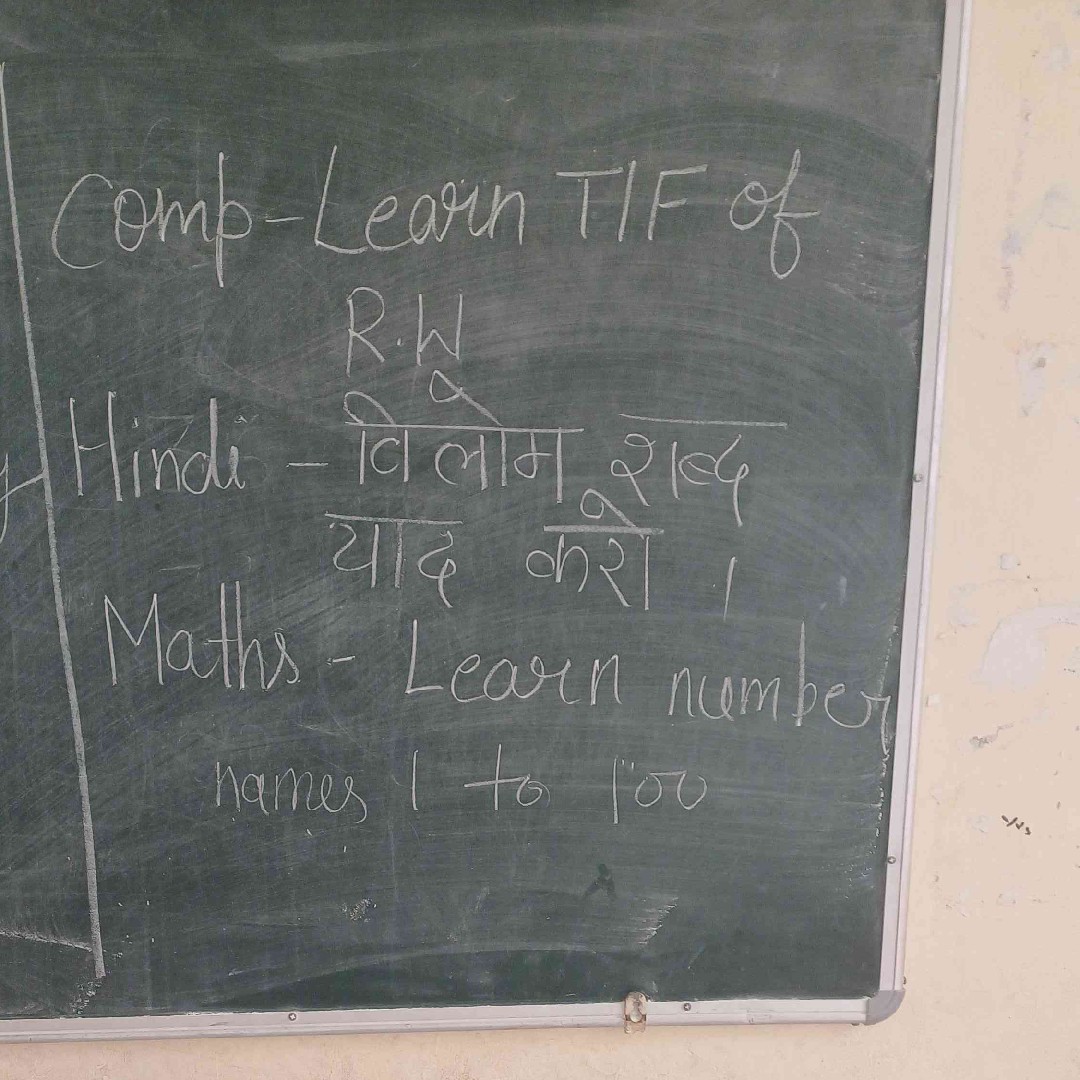 Comp-Learn T/F of
R.W
Hindi - विलोम शब्द
याद करो ।
Maths - Learn number
names 1 to 100